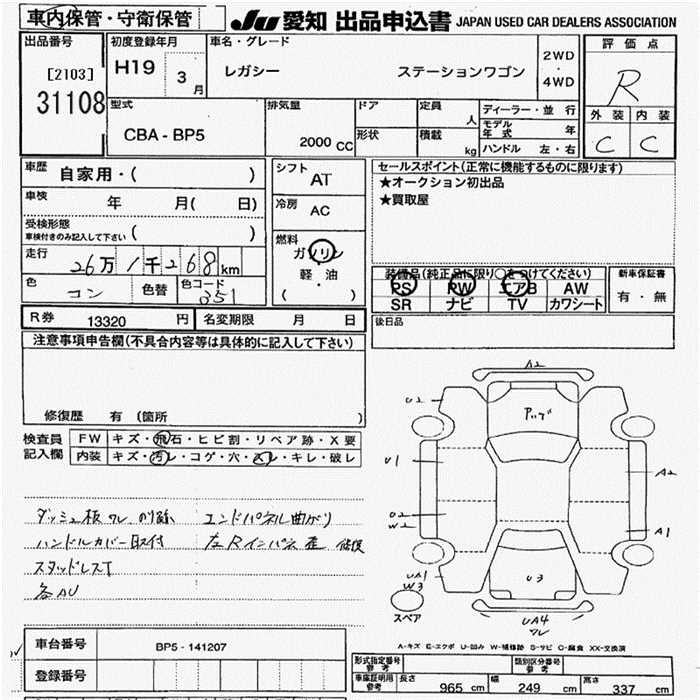 車内保管・守衛保管
JU 愛知 出品申込書 JAPAN USED CAR DEALERS ASSOCIATION
出品番号
[2103]
31108
初度登録年月
H19 3月
車名・グレード
レガシー ステーションワゴン
2WD
・
4WD
評価点
R
外装 内装
C C
型式
CBA - BP5
排気量
2000 CC
ドア
形状
定員
人
積載
kg
ディーラー・並行
モデル年式 年
ハンドル 左・右
車歴
自家用・( )
車検
年 月( 日)
受検形態
車検付きのみ記入して下さい ( )
走行
26万1千268km
色
コン
色替
色コード
351
シフト
AT
冷房
AC
燃料
ガソリン
・
軽・油
( )
セールスポイント(正常に機能するものに限ります)
★オークション初出品
★買取屋
装備品(純正品に限り○をつけてください)
PS PW エアB AW
SR ナビ TV カワシート
新車保証書
有・無
後日品
R券 13320 円
名変期限 月 日
注意事項申告欄(不具合内容等は具体的に記入して下さい)
修復歴 有 (箇所 )
検査員
記入欄
FW キズ・飛石・ヒビ割・リペア跡・X要
内装 キズ・汚レ・コゲ・穴・スレ・キレ・破レ
ダッシュ板ワレ のり跡
エンドパネル曲がり
ハンドルカバー取付
左Rインパネ歪 修復
スタッドレスT
各AU
A2
U2
アップ
U1
A2
U2
W2
A1
UA1
W3
U3
スペア
UA4
ワレ
A-キズ E-エクボ U-凹み W-補修跡 S-サビ C-腐食 XX-交換済
車台番号
BP5 - 141207
登録番号
形式指定番号
参考
類別区分番号
参考
車庫証明用
参考
長さ 965 cm
幅 249 cm
高さ 337 cm